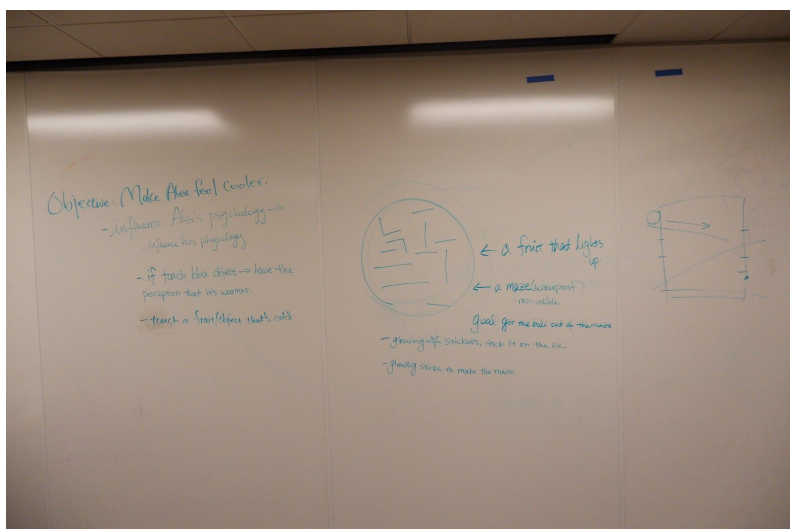 Objective: Make Alex feel cooler.
- influence Alex's psychology →
influence his physiology
- if touch blue object → have the
perception that it's warmer
- touch a fruit/object that's cold
← a fruit that lights
up
← a maze (waterproof)
non-edible
goal: get the ball out of the maze
- glowing stickers, stick it on the ice.
- glowing sticks to make the maze